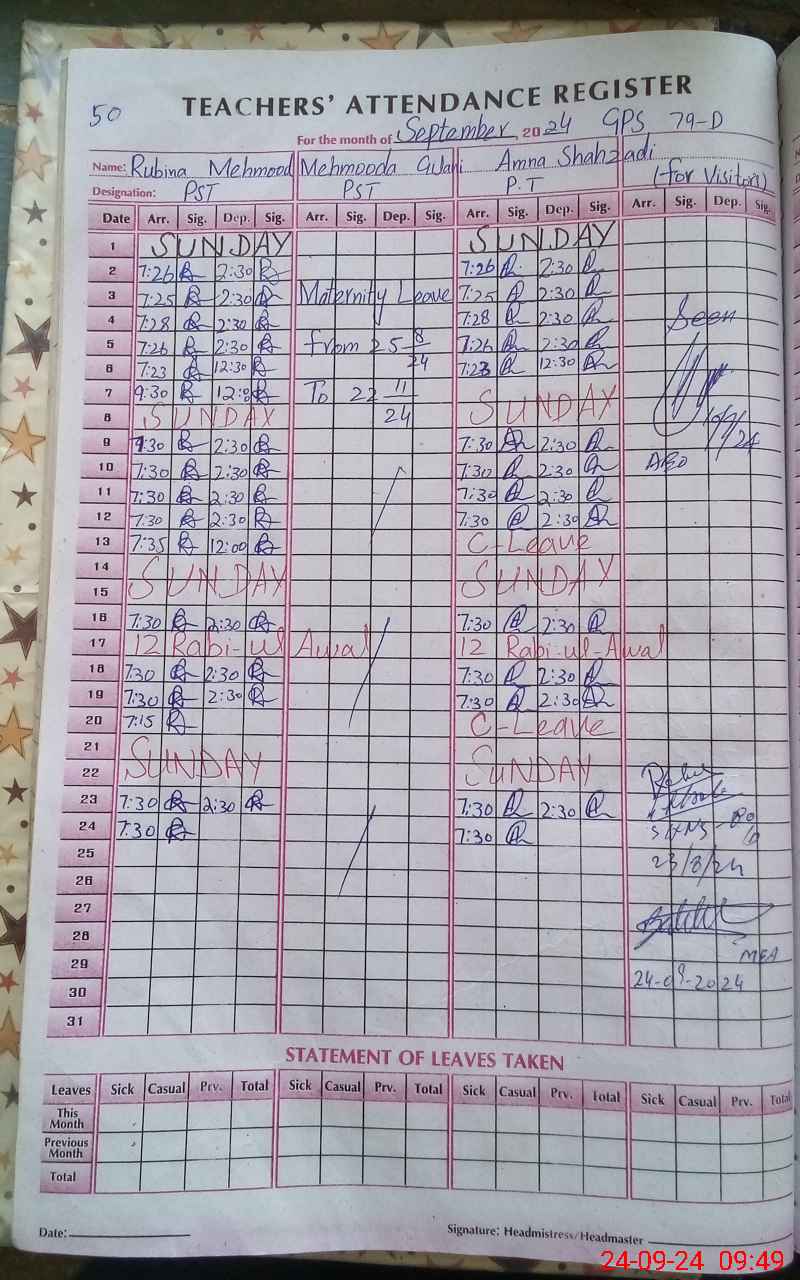 50
TEACHERS' ATTENDANCE REGISTER
For the month of September 2024 GPS 79-D
Name: Rubina Mehmood Mehmooda Gilani Amna Shahzadi
Designation: PST PST P.T (for Visitors)
Date Arr. Sig. Dep. Sig. Arr. Sig. Dep. Sig. Arr. Sig. Dep. Sig. Arr. Sig. Dep. Sig.
1 SUNDAY SUNDAY
2 7:26 2:30 7:26 2:30
3 7:25 2:30 Maternity Leave 7:25 2:30
4 7:28 2:30 7:28 2:30 Seen
5 7:26 2:30 from 25 8/24 7:26 2:30
6 7:23 12:30 7:23 12:30
7 9:30 12:00 To 22 11/24 SUNDAY
8 SUNDAY
9 7:30 2:30 7:30 2:30
10 7:30 2:30 7:30 2:30 AEO
11 7:30 2:30 7:30 2:30
12 7:30 2:30 7:30 2:30
13 7:35 12:00 C-Leave
14 SUNDAY SUNDAY
15
16 7:30 2:30 7:30 2:30
17 12 Rabi-ul Awal 12 Rabi-ul-Awal
18 7:30 2:30 7:30 2:30
19 7:30 2:30 7:30 2:30
20 7:15 C-Leave
21 SUNDAY SUNDAY
22
23 7:30 2:30 7:30 2:30
24 7:30 7:30
25 23/8/24
26
27
28
29 MEA
30 24-09-2024
31
STATEMENT OF LEAVES TAKEN
Leaves Sick Casual Prv. Total Sick Casual Prv. Total Sick Casual Prv. Total Sick Casual Prv. Total
This Month
Previous Month
Total
Date: Signature: Headmistress/Headmaster
24-09-24 09:49